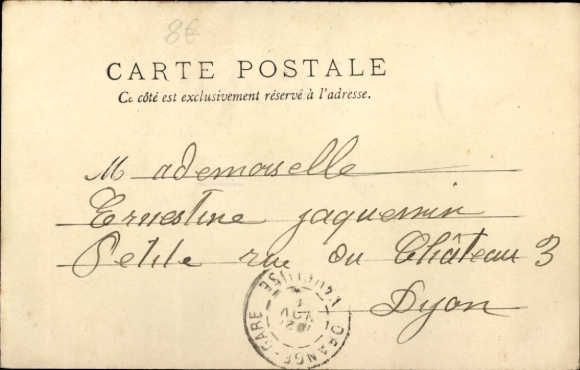 8€
CARTE POSTALE
Ce côté est exclusivement réservé à l'adresse.
Mademoiselle
Ernestine Jaquemin
Petite rue du Château 3
Dyon
ORANGE-GARE VAUCLUSE